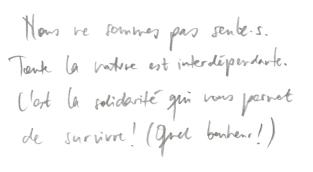 Nous ne sommes pas seul·e·s.
Toute la nature est interdépendante.
C'est la solidarité qui nous permet
de survivre! (Quel bonheur!)